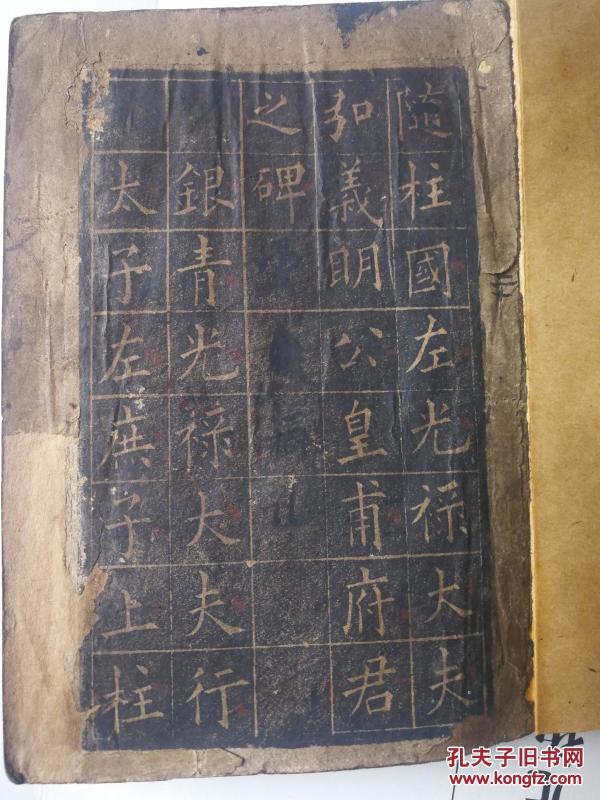 隨柱國左光祿大夫
弘義明公皇甫府君
之碑
銀青光祿大夫行
太子左庶子上柱
孔夫子旧书网
www.kongfz.com